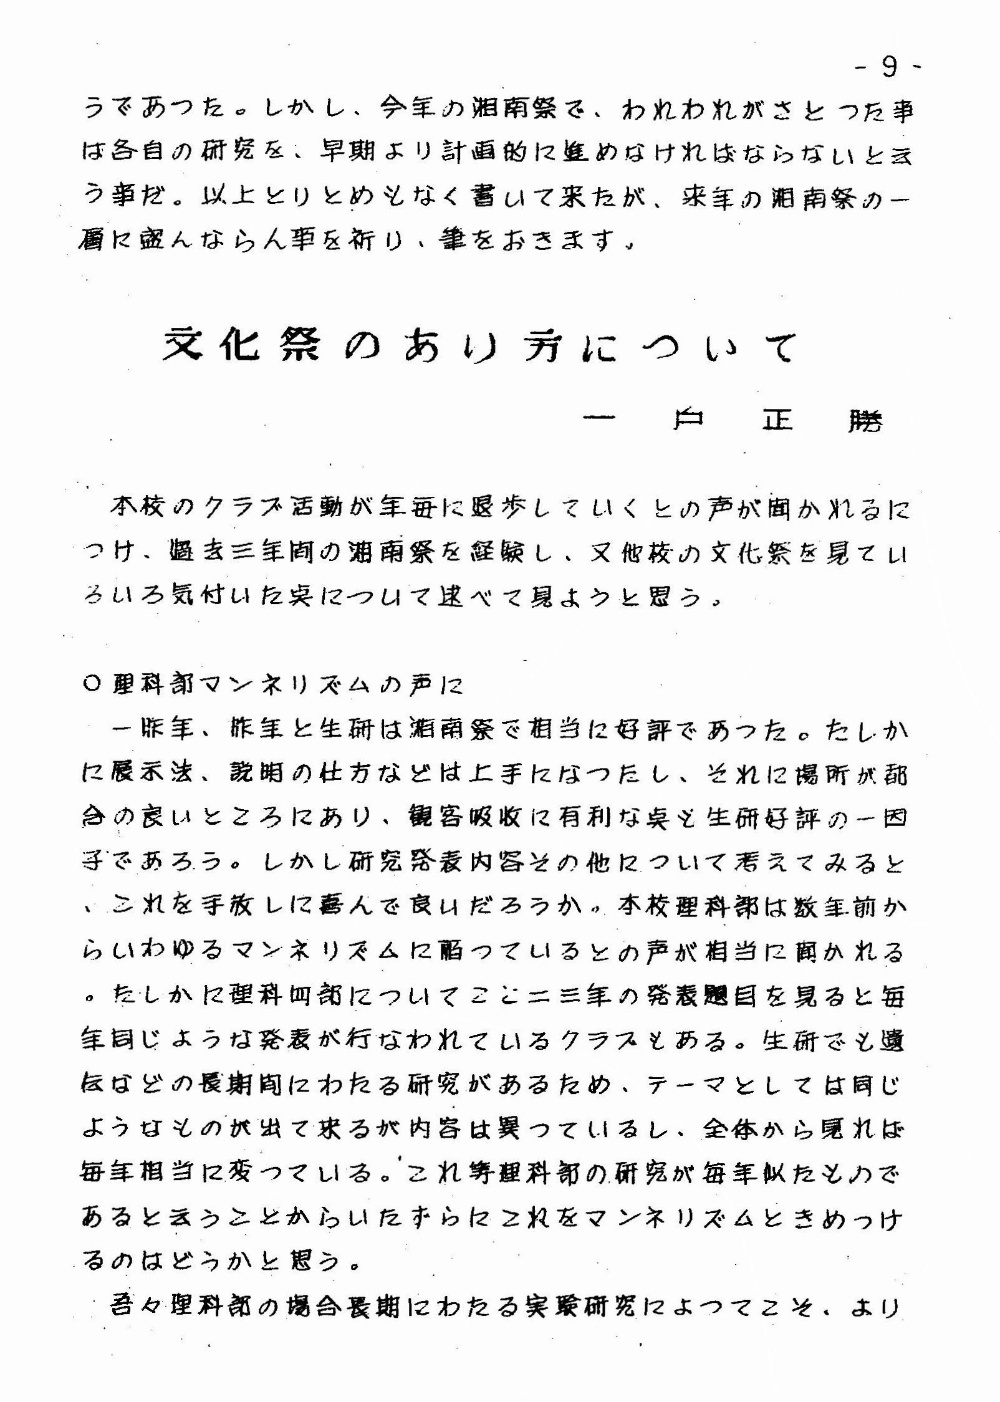 - 9 -
うであつた。しかし、今年の湘南祭で、われわれがさとつた事
は各自の研究を、早期より計画的に進めなければならないと云
う事だ。以上とりとめもなく書いて来たが、来年の湘南祭の一
層に盛んならん事を祈り、筆をおきます。
文化祭のあり方について
一戸正勝
本校のクラブ活動が年毎に退歩していくとの声が聞かれるに
つけ、過去三年間の湘南祭を経験し、又他校の文化祭を見てい
ろいろ気付いた点について述べて見ようと思う。
○理科部マンネリズムの声に
一昨年、昨年と生研は湘南祭で相当に好評であつた。たしか
に展示法、説明の仕方などは上手になつたし、それに場所が都
合の良いところにあり、観客吸収に有利な点も生研好評の一因
子であろう。しかし研究発表内容その他について考えてみると
、これを手放しに喜んで良いだろうか。本校理科部は数年前か
らいわゆるマンネリズムに陥つているとの声が相当に聞かれる
。たしかに理科四部についてここ二三年の発表題目を見ると毎
年同じような発表が行なわれているクラブもある。生研でも遺
伝などの長期間にわたる研究があるため、テーマとしては同じ
ようなものが出て来るが内容は異つているし、全体から見れば
毎年相当に変つている。これ等理科部の研究が毎年似たもので
あると云うことからいたずらにこれをマンネリズムときめつけ
るのはどうかと思う。
吾々理科部の場合長期にわたる実験研究によつてこそ、より